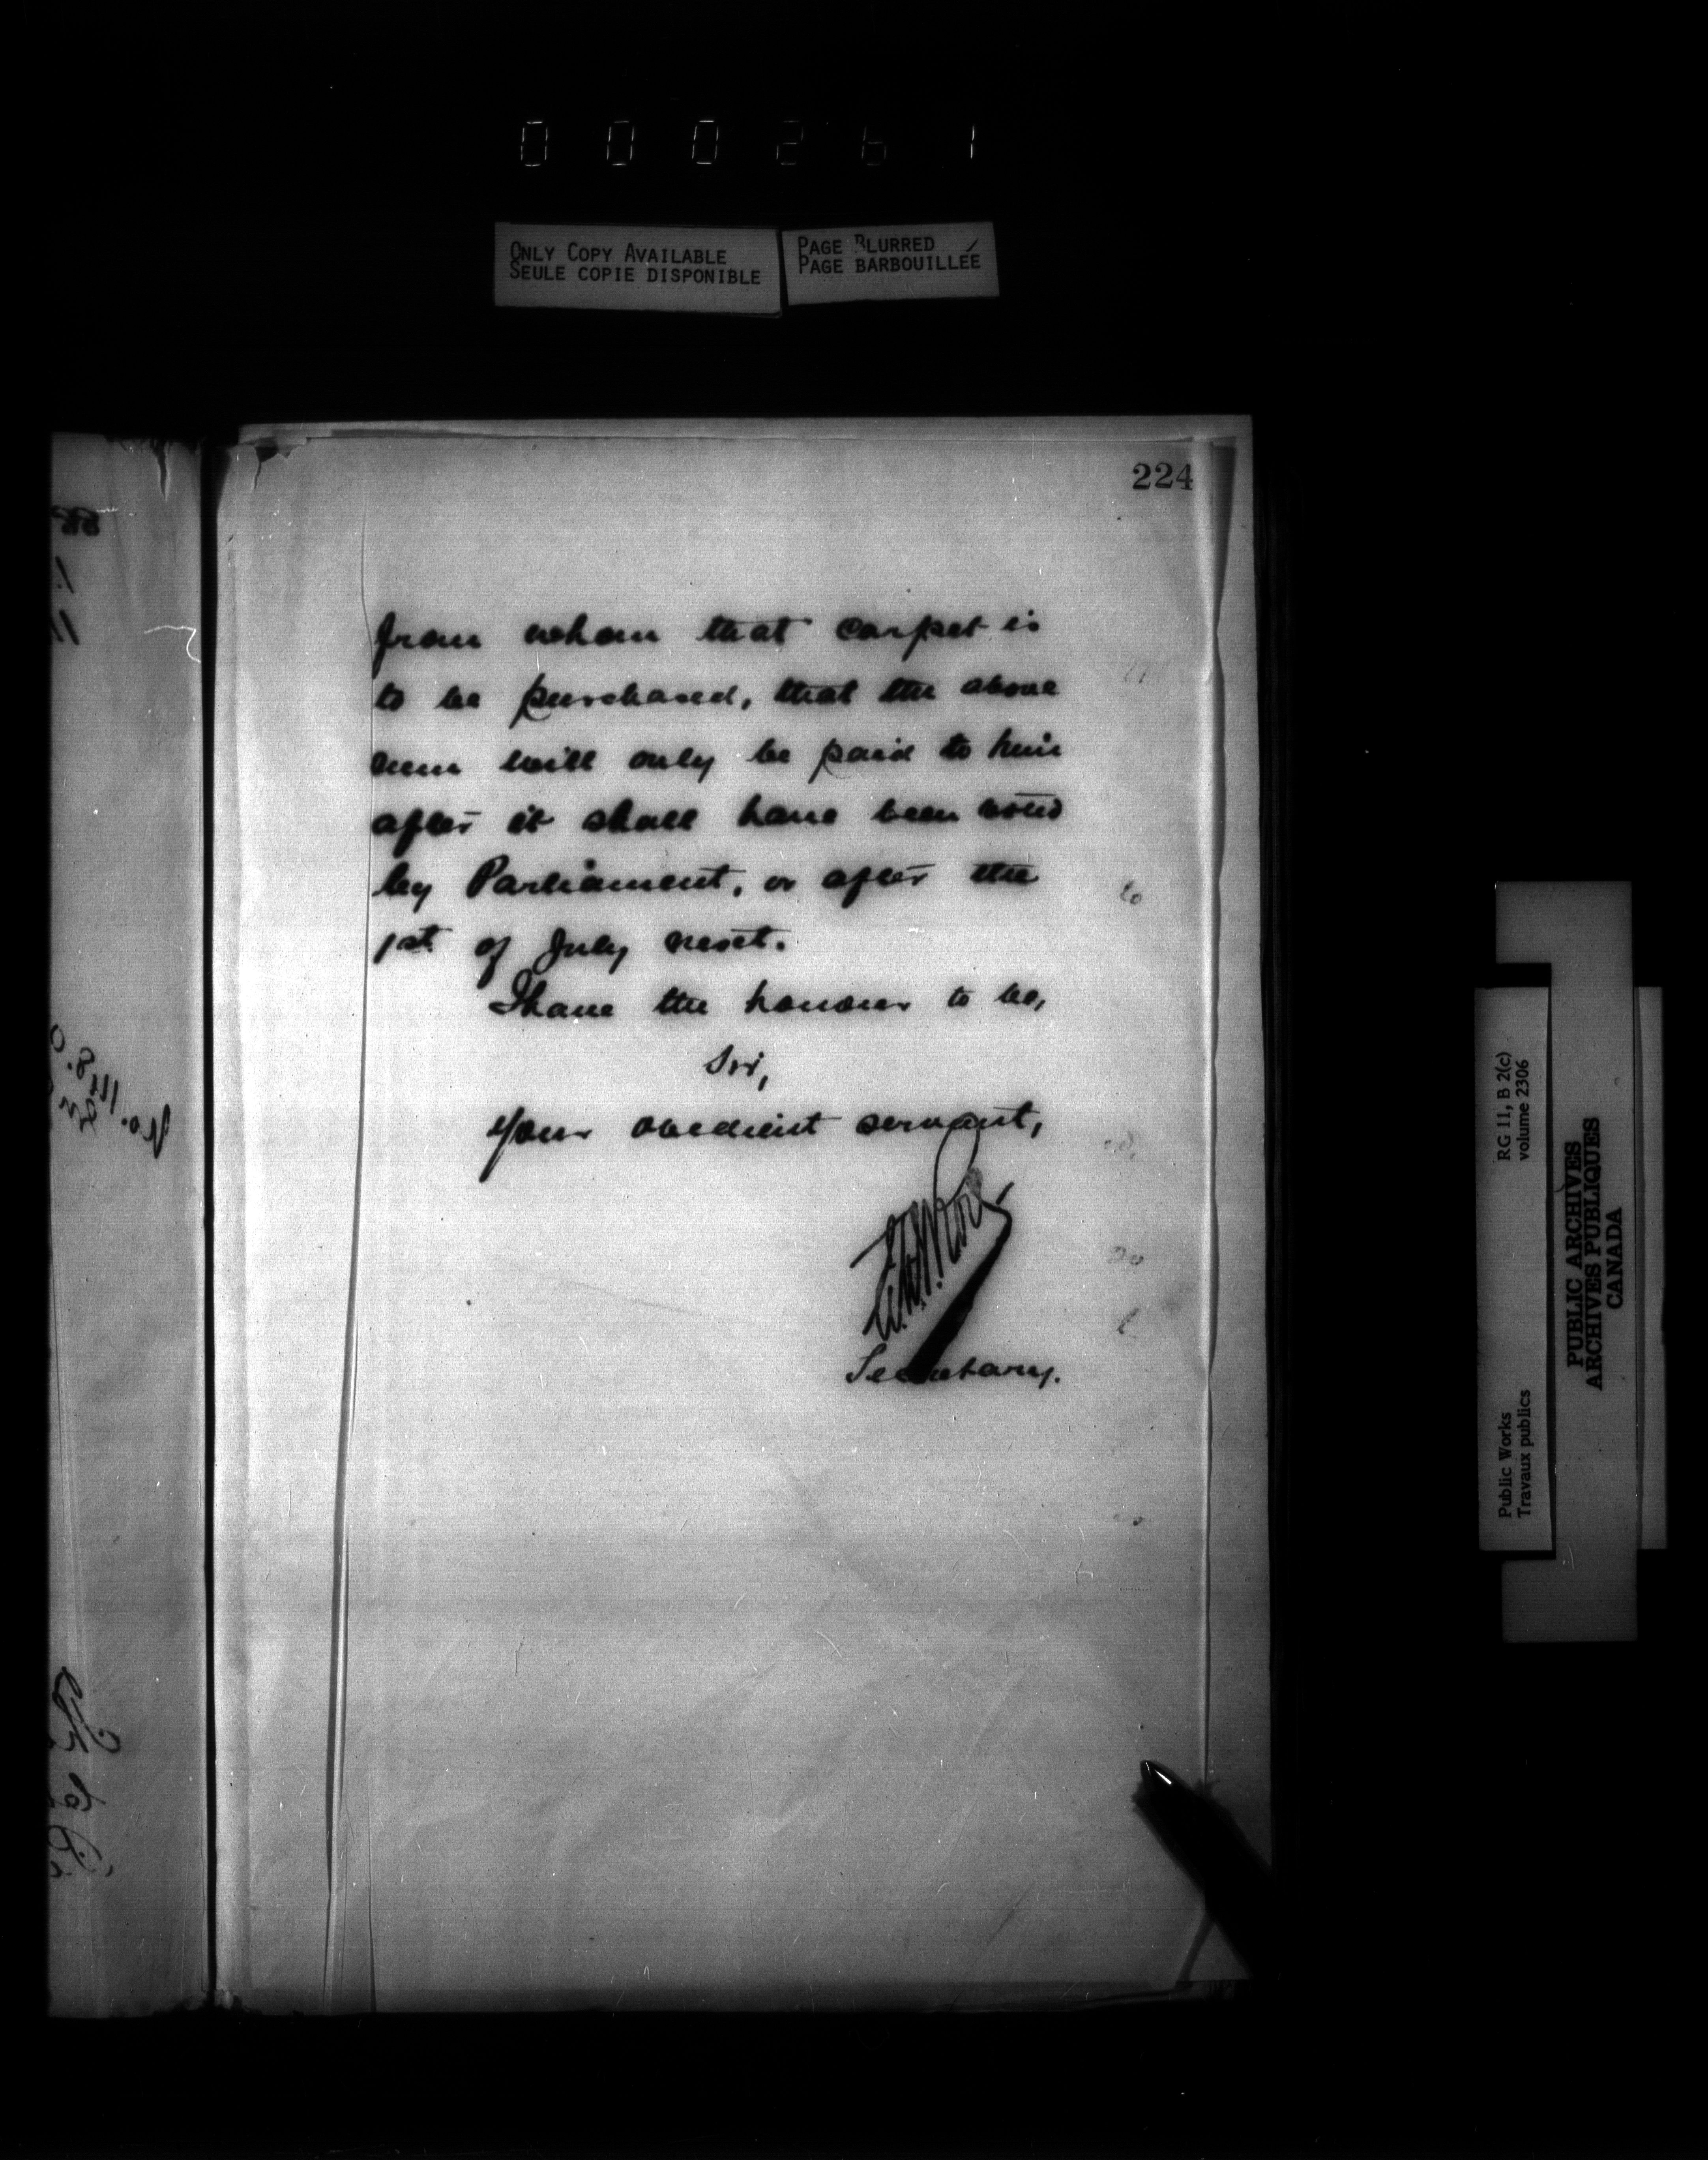 000261
ONLY COPY AVAILABLE
SEULE COPIE DISPONIBLE
PAGE BLURRED
PAGE BARBOUILLÉE
224
from whom that carpet is
to be purchased, that the above
sum will only be paid to him
after it shall have been voted
by Parliament, or after the
1st of July next.
I have the honour to be,
Sir,
Your obedient servant,
Secretary.
RG 11, B 2(c)
volume 2306
Public Works
Travaux publics
PUBLIC ARCHIVES
ARCHIVES PUBLIQUES
CANADA